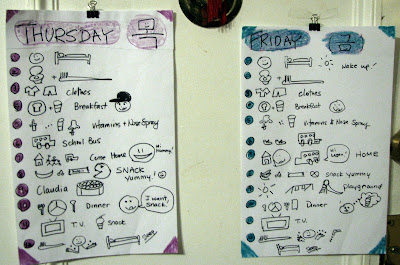 THURSDAY 목
clothes
Breakfast
Vitamins + Nose Spray
School Bus
Come Home
Hi Mommy!
SNACK
yummy!
Claudia
Dinner
I want snack.
T.V. Snack
FRIDAY 금
Wake up!
clothes
Breakfast
Vitamins & Nose Spray
HOME
snack yummy!
playground
Dinner
T.V.